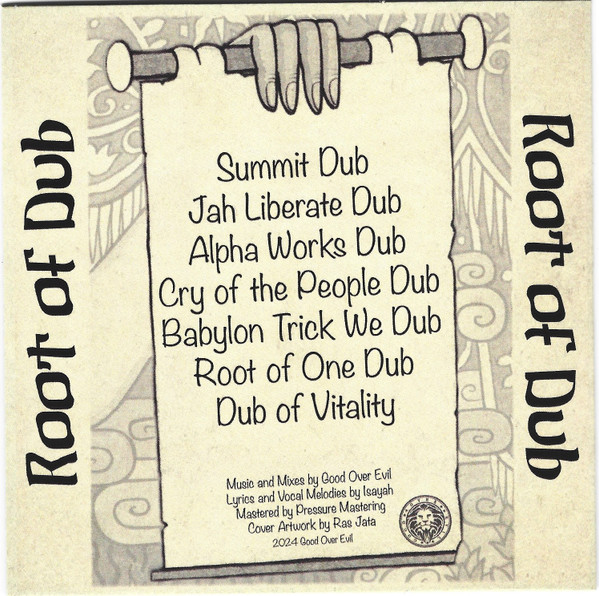 Root of Dub
Summit Dub
Jah Liberate Dub
Alpha Works Dub
Cry of the People Dub
Babylon Trick We Dub
Root of One Dub
Dub of Vitality
Music and Mixes by Good Over Evil
Lyrics and Vocal Melodies by Isayah
Mastered by Pressure Mastering
Cover Artwork by Ras Jata
2024 Good Over Evil
Root of Dub